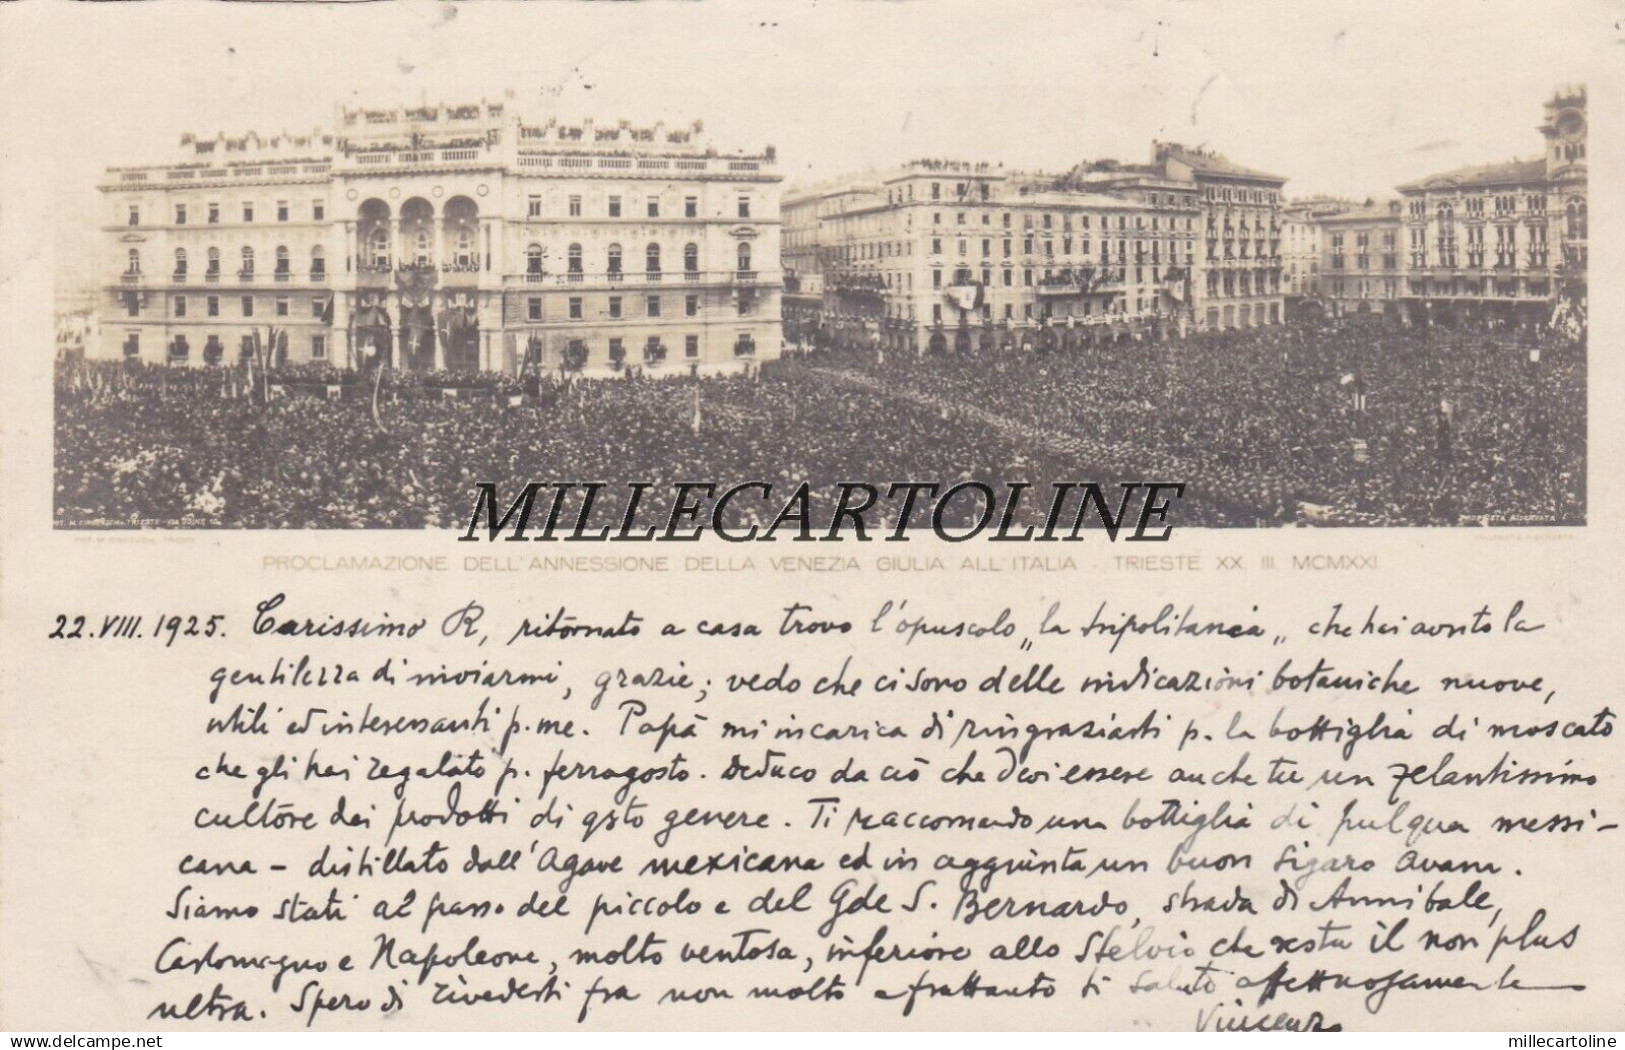 MILLECARTOLINE
PROPRIETA RISERVATA
PROCLAMAZIONE DELL'ANNESSIONE DELLA VENEZIA GIULIA ALL'ITALIA - TRIESTE XX. III. MCMXXI
22.VIII.1925. Carissimo R, ritornato a casa trovo l'opuscolo „la tripolitania„ che hai avuto la
gentilezza di inviarmi, grazie; vedo che ci sono delle indicazioni botaniche nuove,
utili ed interessanti p. me. Papà mi incarica di ringraziarti p. la bottiglia di moscato
che gli hai regalato p. ferragosto. Deduco da ciò che devi essere anche tu un zelantissimo
cultore dei prodotti di qsto genere. Ti raccomando una bottiglia di pulqua messi-
cana - distillato dall'Agave mexicana ed in aggiunta un buon sigaro avana.
Siamo stati al passo del piccolo e del Gde S. Bernardo, strada di Annibale,
Carlomagno e Napoleone, molto ventosa, inferiore allo Stelvio che resta il non plus
ultra. Spero di rivederti fra non molto e frattanto ti saluto affettuosamente
Vincenzo
millecartoline
delcampe.net